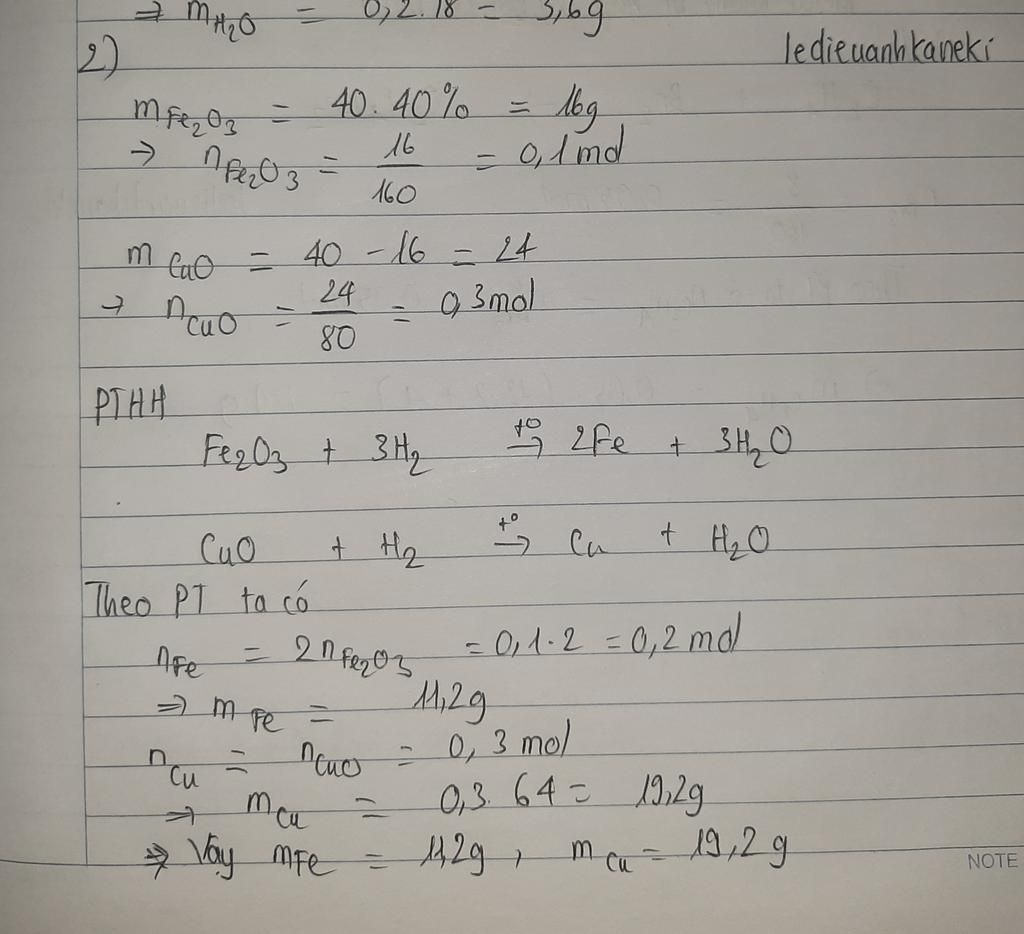 ⇒ mH₂O = 0,2.18 = 3,6g
2) ledieuanhkaneki
mFe₂O₃ = 40.40% = 16g
→ nFe₂O₃ = 16/160 = 0,1mol
mCuO = 40 - 16 = 24
→ nCuO = 24/80 = 0,3mol
PTHH
Fe₂O₃ + 3H₂ t°→ 2Fe + 3H₂O
CuO + H₂ t°→ Cu + H₂O
Theo PT ta có
nFe = 2nFe₂O₃ = 0,1.2 = 0,2mol
⇒ mFe = 11,2g
nCu = nCuO = 0,3mol
⇒ mCu = 0,3.64 = 19,2g
⇒ Vậy mFe = 11,2g, mCu = 19,2g
NOTE